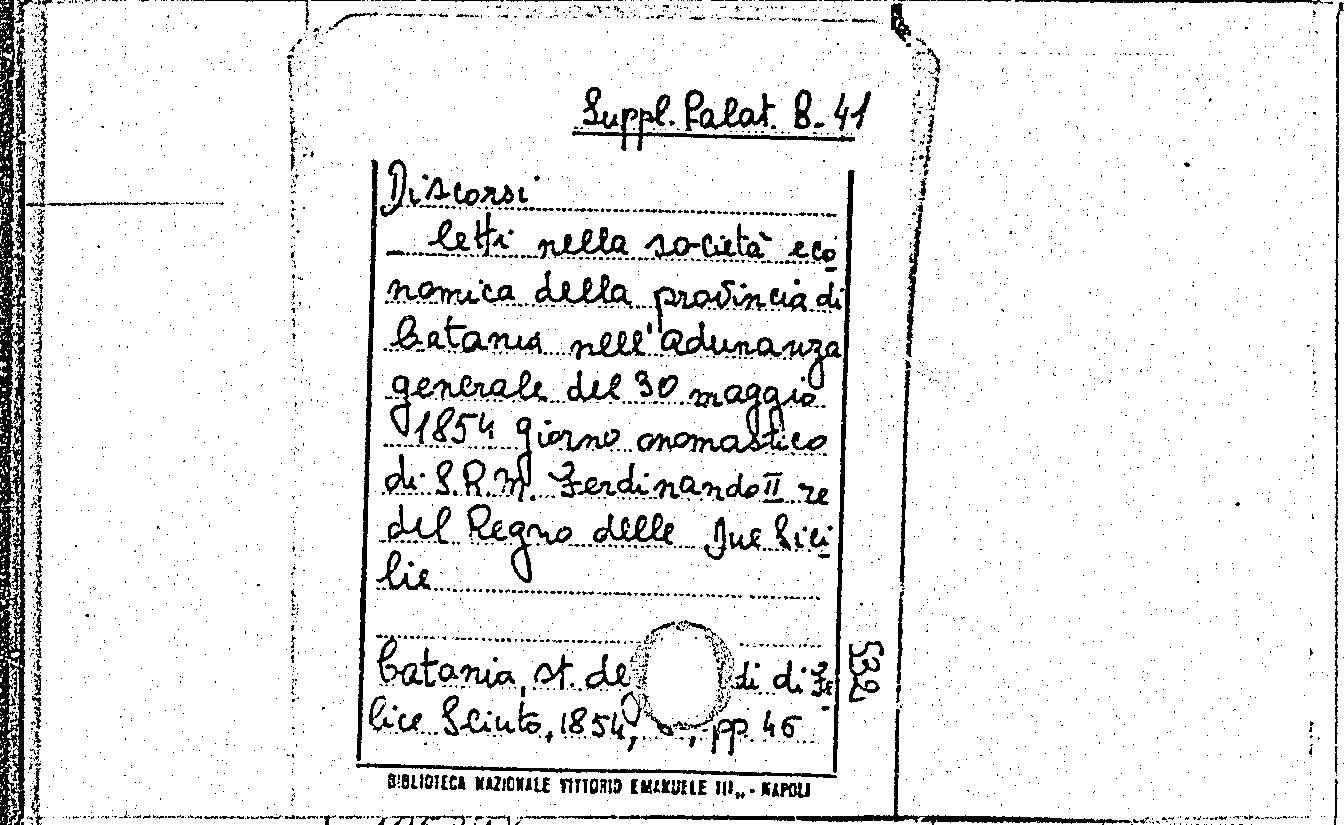 Suppl. Palat. B-41
Discorsi
_ letti nella società eco
nomica della provincia di
Catania nell'adunanza
generale del 30 maggio
1854 giorno onomastico
di S.R.M. Ferdinando II re
del Regno delle Due Sici
lie
Catania, st. de di di Fe
lice Sciuto, 1854, pp 46
532
BIBLIOTECA NAZIONALE VITTORIO EMANUELE III„ - NAPOLI